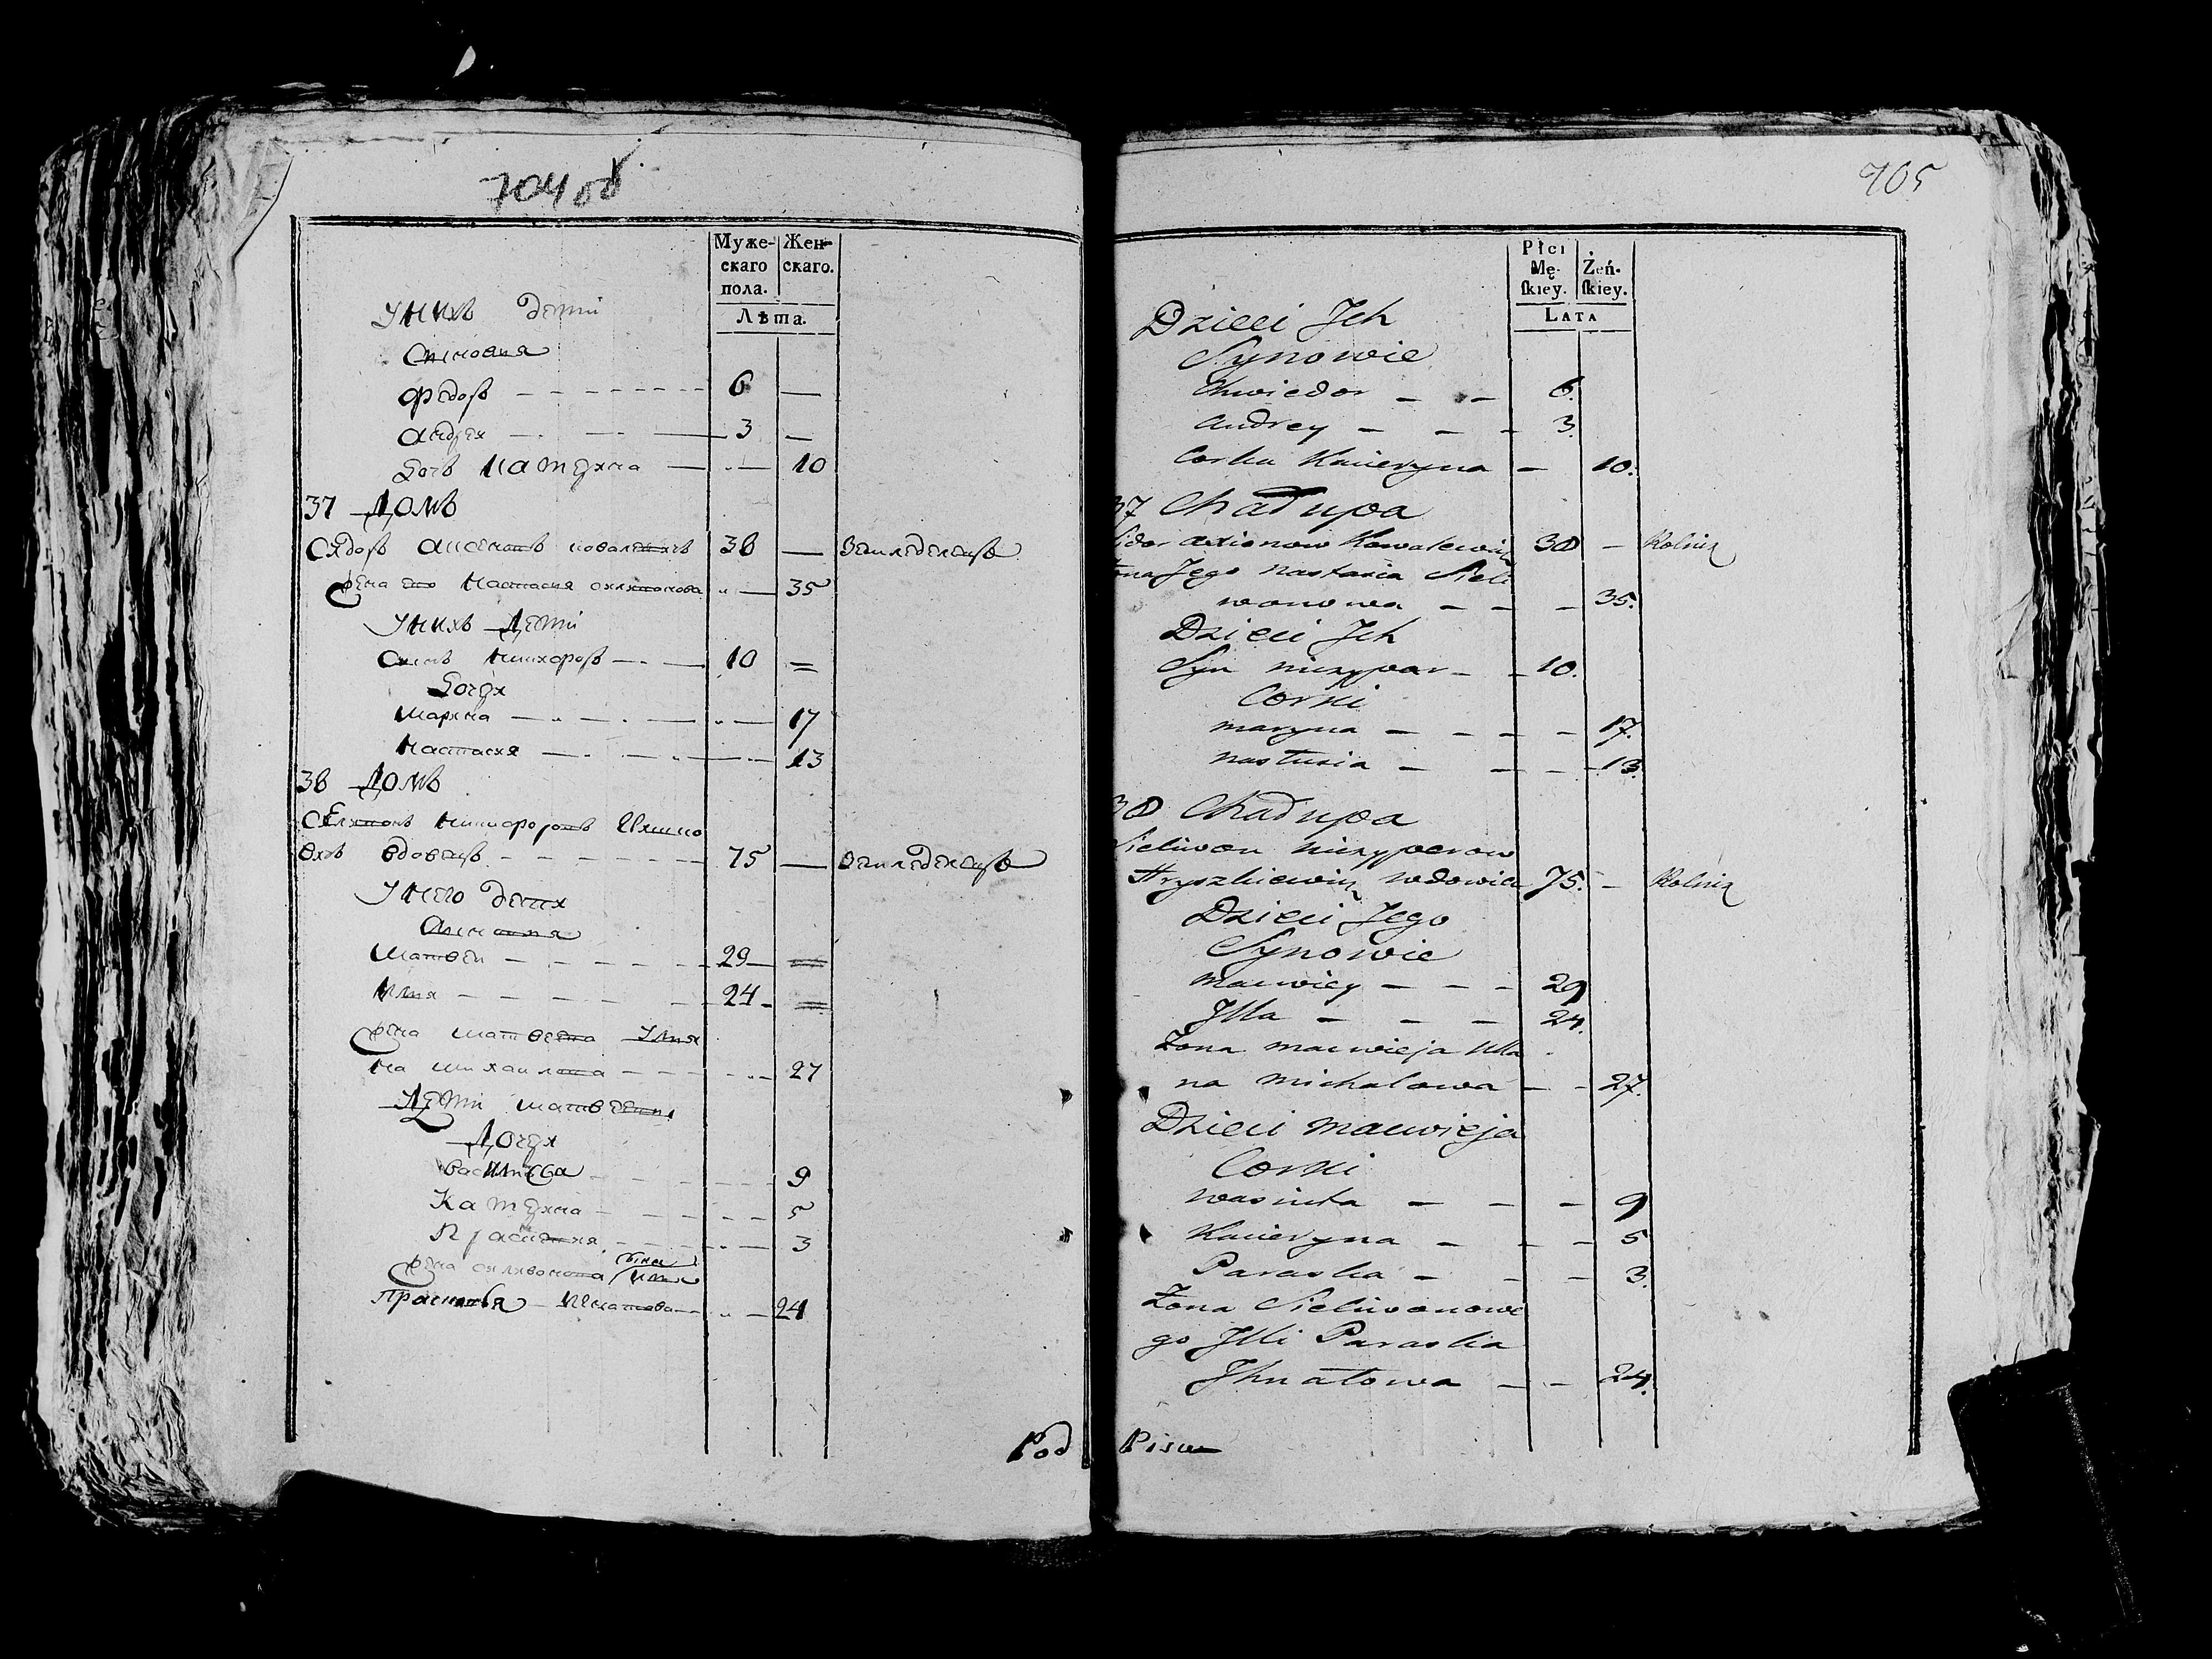 704 об
Муже-
скаго
пола.
Жен-
скаго.
Лѣта.
У нихъ дети
Сыновья
Федоръ 6 —
Андрей 3 —
Дочь Катерина — 10
37 Домъ
Сидоръ Аксеновъ Ковалевичъ 38 — Земледелецъ
Жена его Настасия Силивонова — 35
У нихъ Дети
Сынъ Никифоръ 10
Дочери
Марина — 17
Настасия — 13
38 Домъ
Никифоровъ
вдовецъ 75 — Земледелецъ
У него дети
Сыновья
Матвей 29
Илия 24
Жена Матвеева Улия
на Михайлова — 27
Дети Матвеевы
Дочери
9
Катерина 5
3
Жена Силивонова сына Илии
Прасковья Игнатова — 24
Pod
705
Płci
Mę-
skiey.
Żeń-
skiey.
LATA
Dzieci Jch
Synowie
Chwiedor 6.
Andrey 3.
Corka Kacieryna 10.
37 Chałupa
Sidor Axionow Kowalewicz 38 — Rolnik
Żona Jego Nastazia Sieli
wonowa 35.
Dzieci Jch
Syn Niczypor 10.
Corki
Maryna 17.
Nastazia 13
38 Chałupa
Sieliwon Niczyporow
Hryszkiewicz wdowiec 75. — Rolnik
Dzieci Jego
Synowie
Maciwiey 29
Jlla 24.
Żona Maciwieja Ulla
na Michałowa 27.
Dzieci Maciwieja
Corki
9
Kacieryna 5
Paraska 3.
Żona Sieliwonowe
go Jlli Paraska
Jhnatowa 24.
Pisu